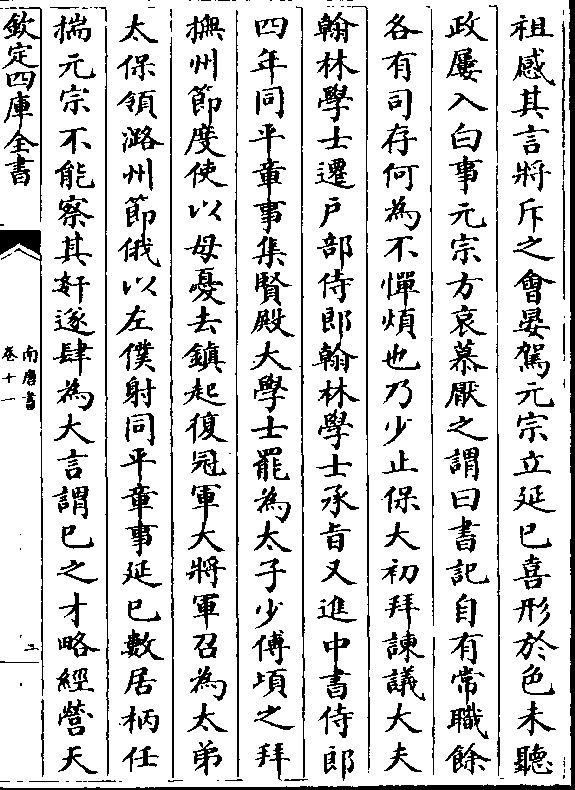 祖感其言將斥之會晏駕元宗立延巳喜形於色未聽
政屢入白事元宗方哀慕厭之謂曰書記自有常職餘
各有司存何為不憚煩也乃少止保大初拜諫議大夫
翰林學士遷戶部侍郎翰林學士承旨又進中書侍郎
四年同平章事集賢殿大學士罷為太子少傅頃之拜
撫州節度使以母憂去鎮起復冠軍大將軍召為太弟
太保領潞州節俄以左僕射同平章事延巳數居柄任
揣元宗不能察其奸遂肆為大言謂巳之才略經營天
欽定四庫全書
南唐書
卷十一
三